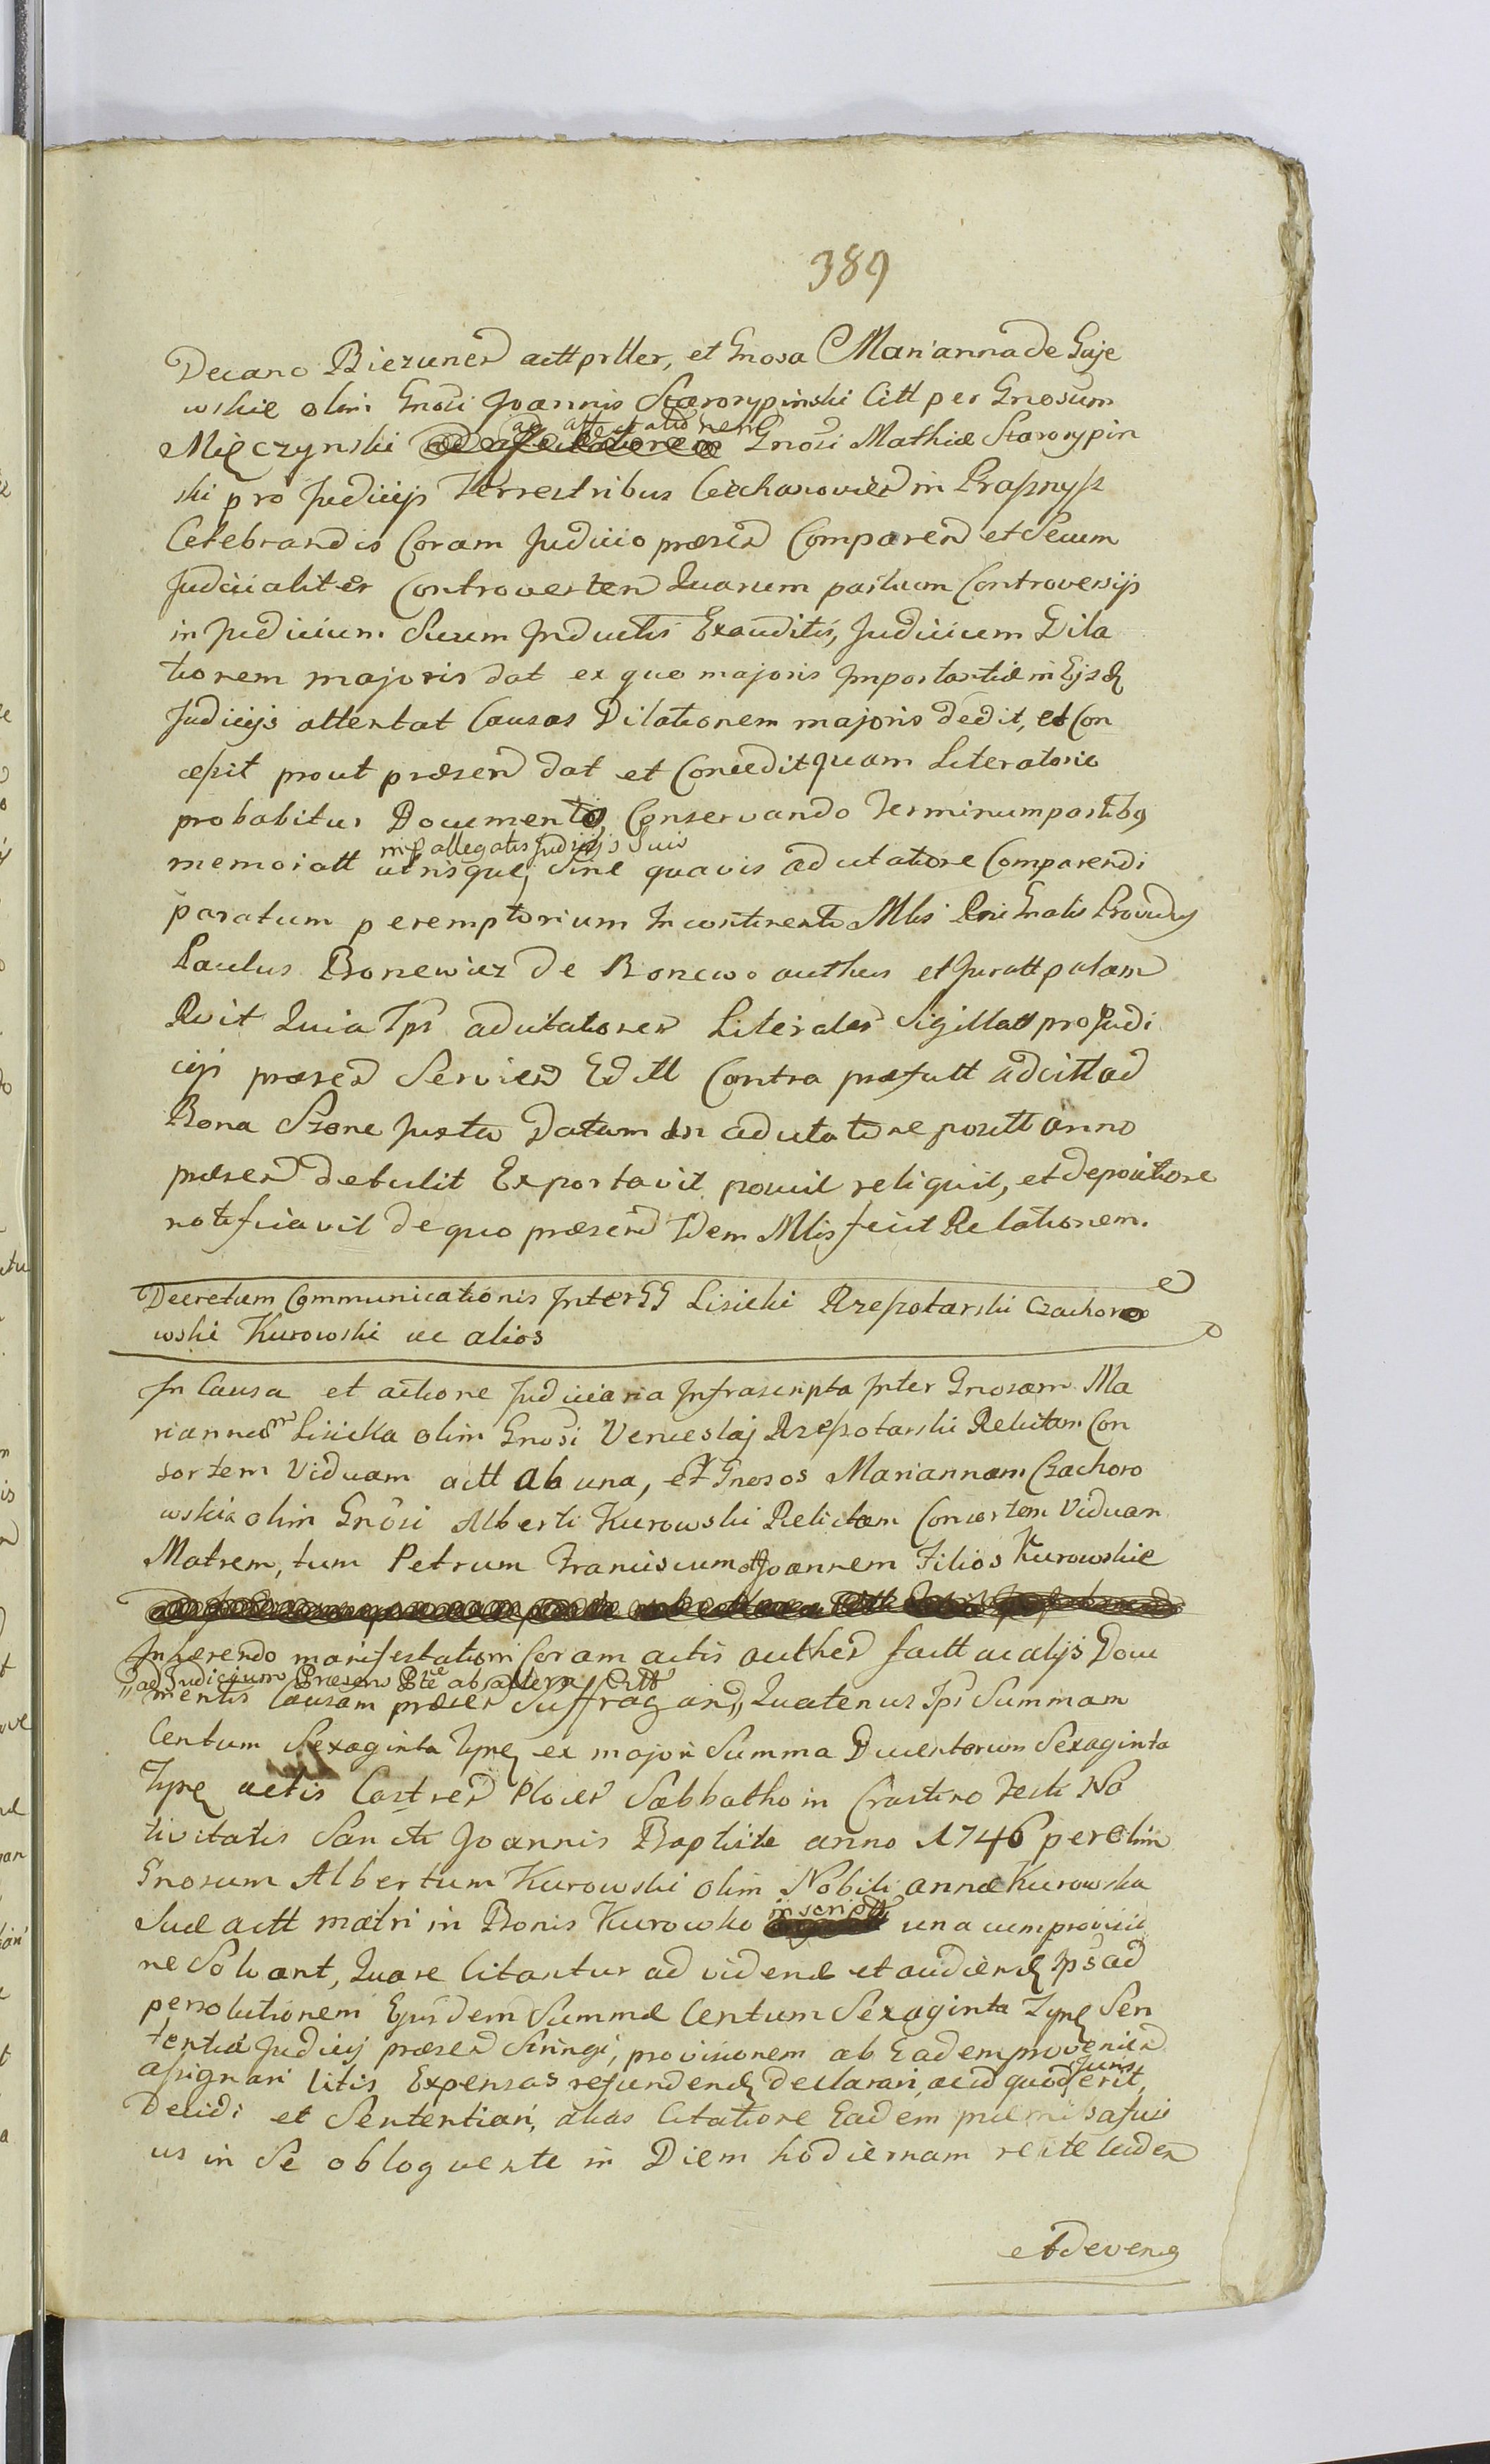 389
Decano Biezunen actt prller, et Gnosa Marianna de Gaje
wskie olim Gnosi Joannis Starorypinski Citt per Gnosum
ad affectationem
Mięczynski Gnosi Mathiæ Starorypin
ski pro Judicijs Terrestribus Ciechanovien in Praſznysz
Celebrandis Coram Judicio præsen Comparen et Secum
Judicialiter Controverten Quarum partium Controversijs
in Judicium Suum Inductis Exauditis, Judicium Dila
tionem majoris dat ex quo majoris Importantiæ in Ejsd
Judicijs attentat Causas Dilationem majoris dedit, et Con
ceſsit prout præsen dat et Concedit quam Literatorie
probabitur Documentis Conservando Terminum partibus
in ſallegatis Judicijs Suis
memoratt utrisque, Sine quavis adcitatione Comparendi
paratum peremptorium Incontinenti Mlis Rni Gnalis Providus
Paulus Bonewicz de Bonewo authen et Juratt palam
Rvit Quia Ips adcitationen Literales Sigillatt pro Judi
cijs præsen Servien Editt Contra præfatt adcitt ad
Bona Szone Juxta Datum in adcitatione positt anno
præsen detulit Exportavit posuit reliquit, et depositione
notificavit de quo præsen Idem Mlis fecit Relationem.
Decretum Communicationis Inter GG Lisicki Rzeſzotarski Czachoro
wski Kurowski ac alios
In Causa et actione Judiciaria Infrascripta Inter Gnosam Ma
riannam Lisicka olim Gnosi Venceslaj Rzeſzotarski Relictam Con
sortem Viduam actt ab una, et Gnosos Mariannam Czachoro
wskie olim Gnosi Alberti Kurowski Relictam Consortem Viduam
Matrem, tum Petrum Franciscum et Joannem Filios Kurowskie
Inhærendo manifestationi Coram actis authen factt ac alijs Docu
ad Judicium Præsens Pte ab altera Citt
mentis Causam præsen Suffragan, Quatenus Ipsi Summam
Centum Sexaginta Tynf ex majori Summa Ducentorum Sexaginta
Tynf actis Castren Plocen Sabbatho in Crastino Festi Na
tivitatis Sancti Joannis Baptistæ anno 1746 per olim
Gnosum Albertum Kurowski olim Nobili annæ Kurowska
inscriptt
Suæ actt matri in Bonis Kurowko una cum provisio
ne Solvant, Quare Citantur ad viden et audiend Ips ad
persolutionem Ejusdem Summæ Centum Sexaginta Tynf Sen
tentia Judicij præsen Stringi, provisionem ab Eadem provenien
aſsignari litis Expensas refundend declarari, ac id quod Juris erit,
Decidi et Sententiari, alias Citatione Eadem præmiſsa fusi
us in Se obloquente in Diem hodiernam recte Caden
et deven